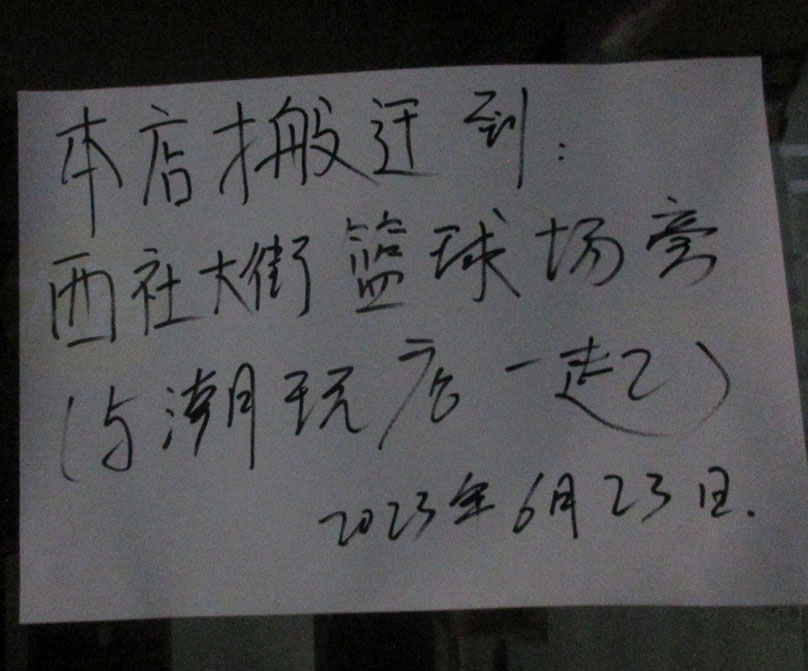 本店搬迁到：
西社大街篮球场旁
（与潮玩店一起）
2023年6月23日.